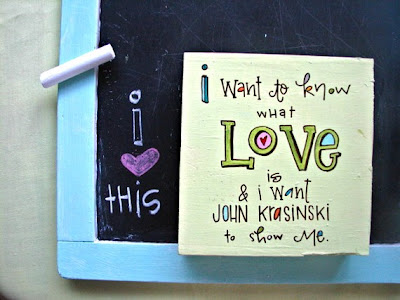 i
♥
this
i want to know
what
LOVE
is
& i want
JOHN KRASINSKI
to show me.